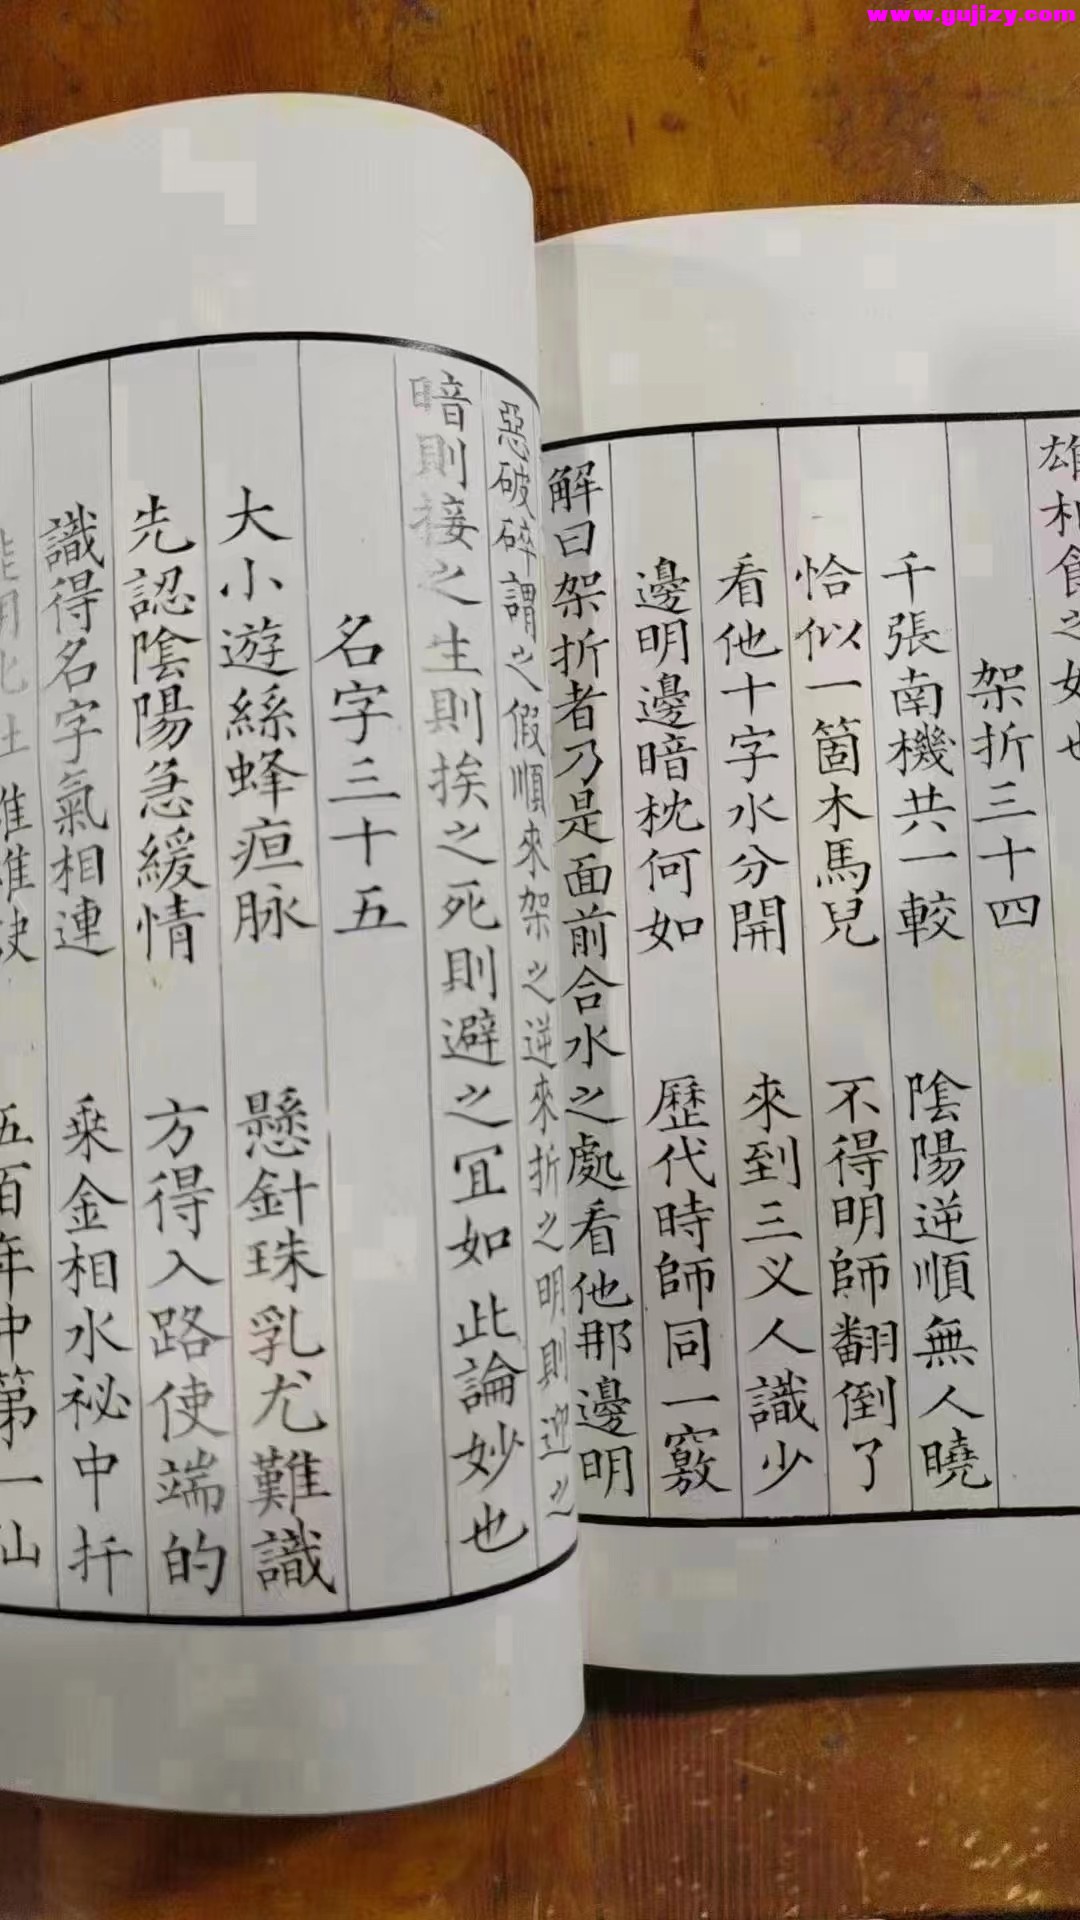 www.gujizy.com
之如也
架折三十四
千張南機共一較 陰陽逆順無人曉
恰似一箇木馬兒 不得明師翻倒了
看他十字水分開 來到三义人識少
邊明邊暗枕何如 歷代時師同一竅
解曰架折者乃是面前合水之處看他那邊明
惡破碎謂之假順來架之逆來折之明則迎之
暗則接之生則挨之死則避之冝如此論妙也
名字三十五
大小遊絲蜂疸脉 懸針珠乳尤難識
先認陰陽急緩情 方得入路使端的
識得名字氣相連 乘金相水祕中扦
五百年中第一仙